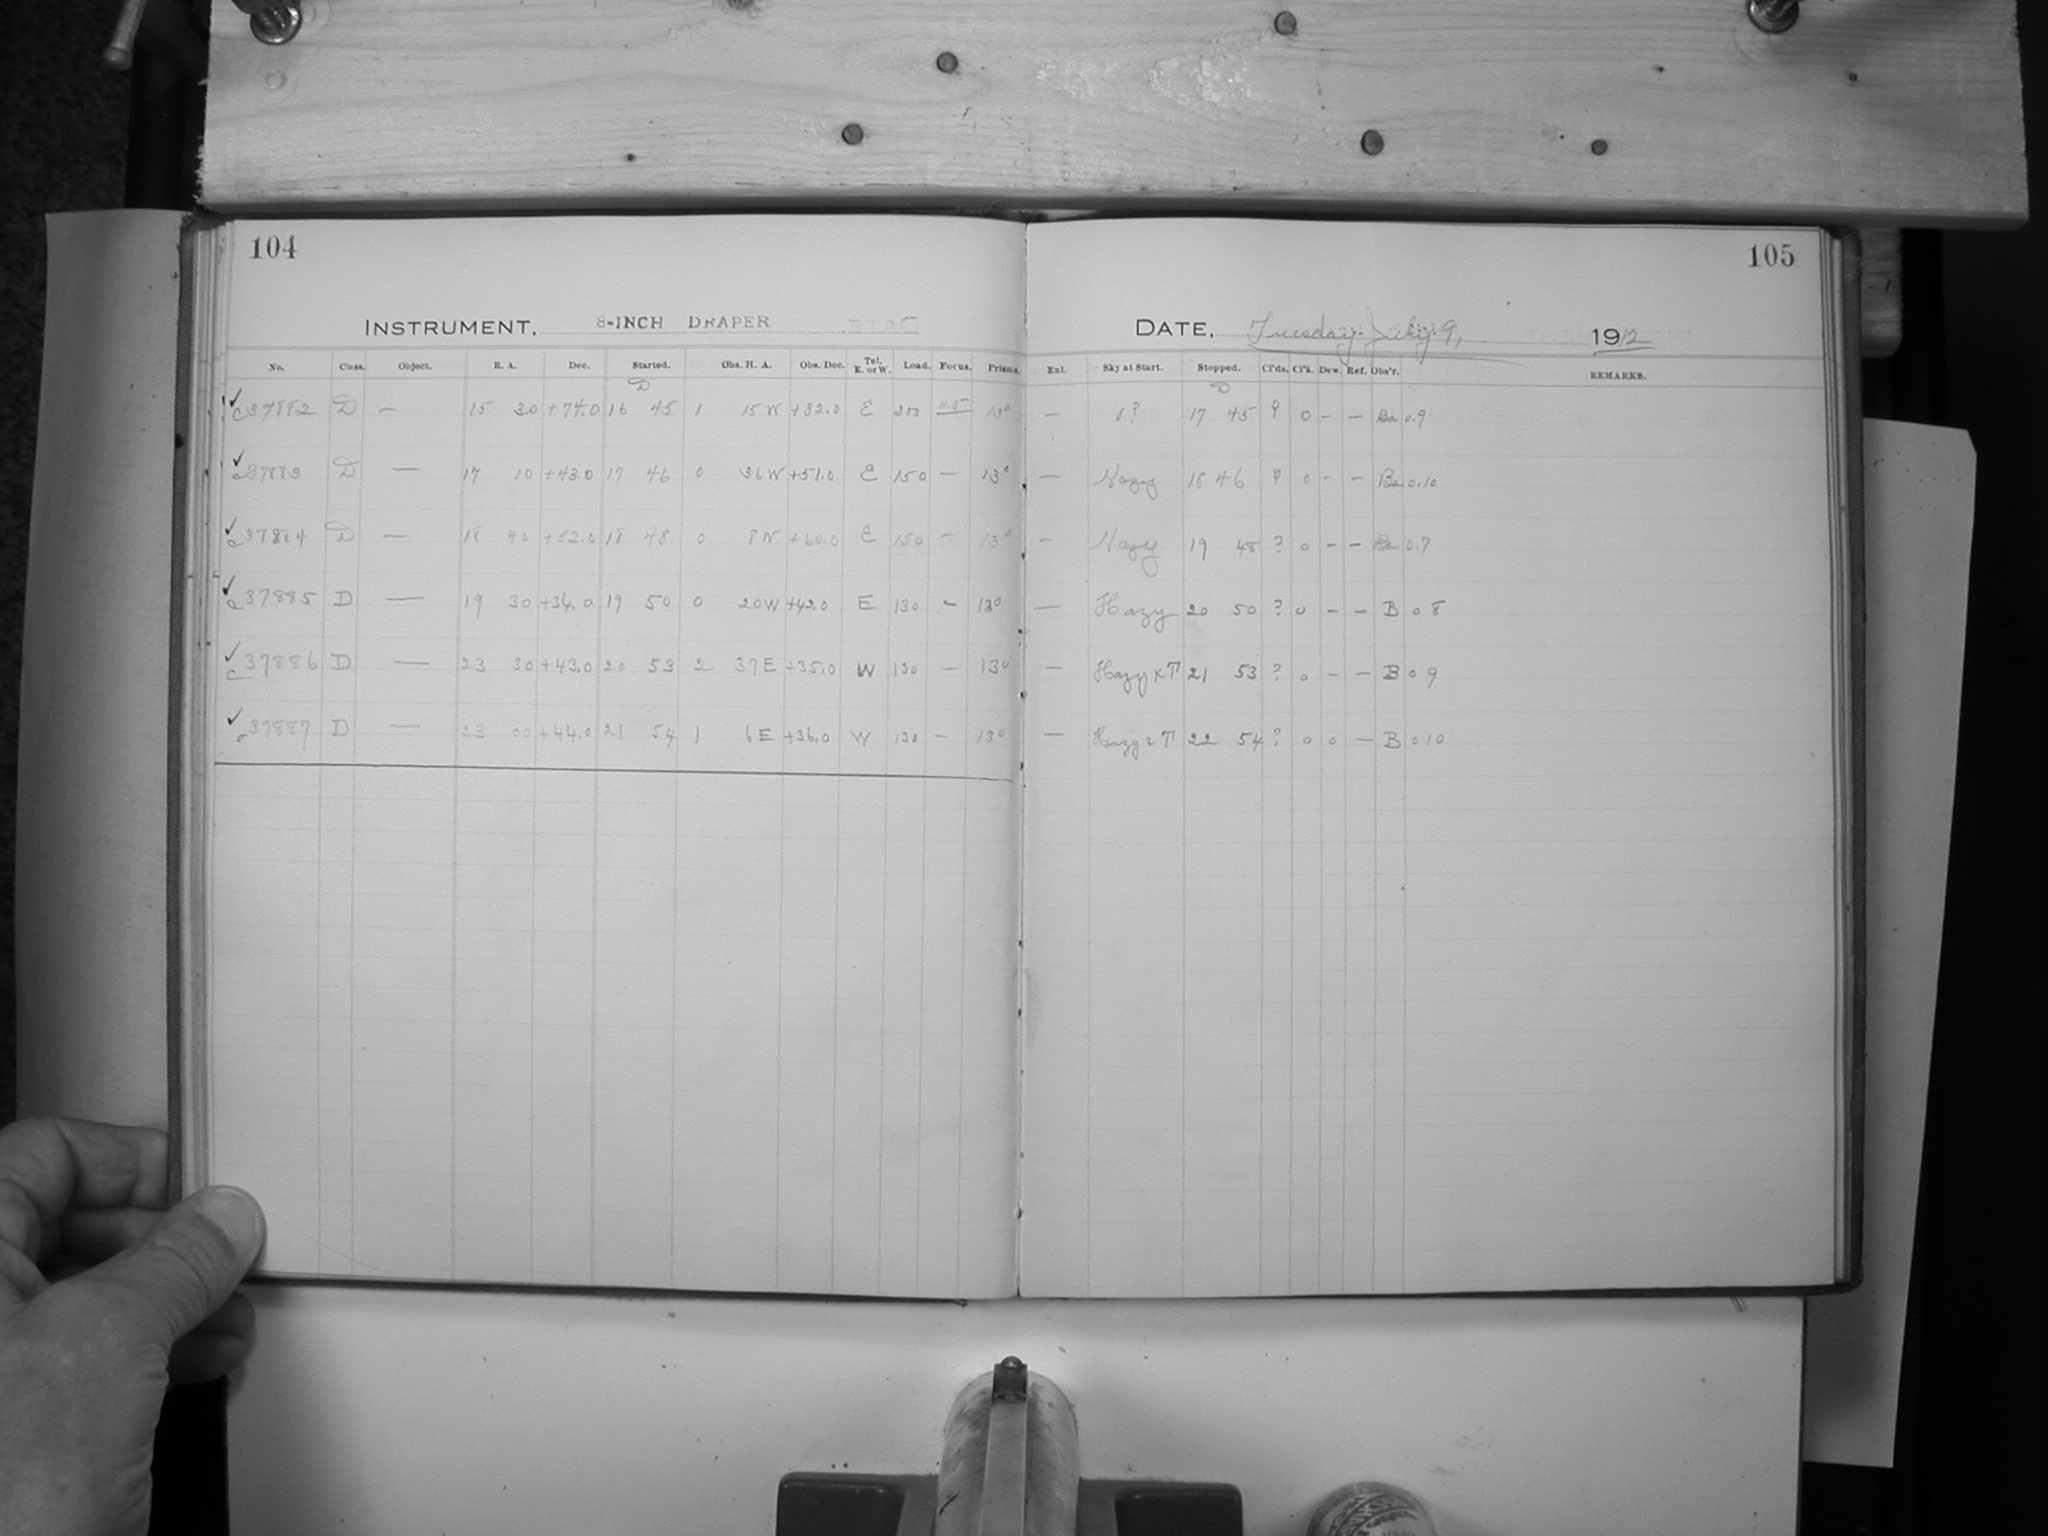 104
105
INSTRUMENT. 8-INCH DRAPER
DATE. Tuesday July 9, 1912
No. Class. Object. R. A. Dec. Started. Obs. H. A. Obs. Dec. Tel. E. or W. Load. Focus. Prisms. Enl. Sky at Start. Stopped. Cl'ds. Cl'k. Dew. Ref. Obs'r. REMARKS.
D D
✓ c37882 D — 15 30 +74.0 16 45 1 15 W +82.0 E 200 13° — 1? 17 45 ? 0 – – Ba 0.9
✓ c37883 D — 17 10 +43.0 17 46 0 36 W +51.0 E 150 — 13° — Hazy 18 46 ? 0 – – Ba 0.10
✓ c37884 D — 18 40 +52.0 18 48 0 8 W +60.0 E 150 – 13° – Hazy 19 48 ? 0 – – Ba 0.7
✓ c37885 D — 19 30 +34.0 19 50 0 20 W +42.0 E 130 – 13° — Hazy 20 50 ? 0 – – B 0 8
✓ c37886 D — 23 30 +43.0 20 53 2 37 E +35.0 W 130 – 13° — Hazy x T 21 53 ? 0 – – B 0 9
✓ c37887 D — 23 00 +44.0 21 54 1 6 E +36.0 W 130 – 13° — Hazy x T 22 54 ? 0 0 – B 0 10